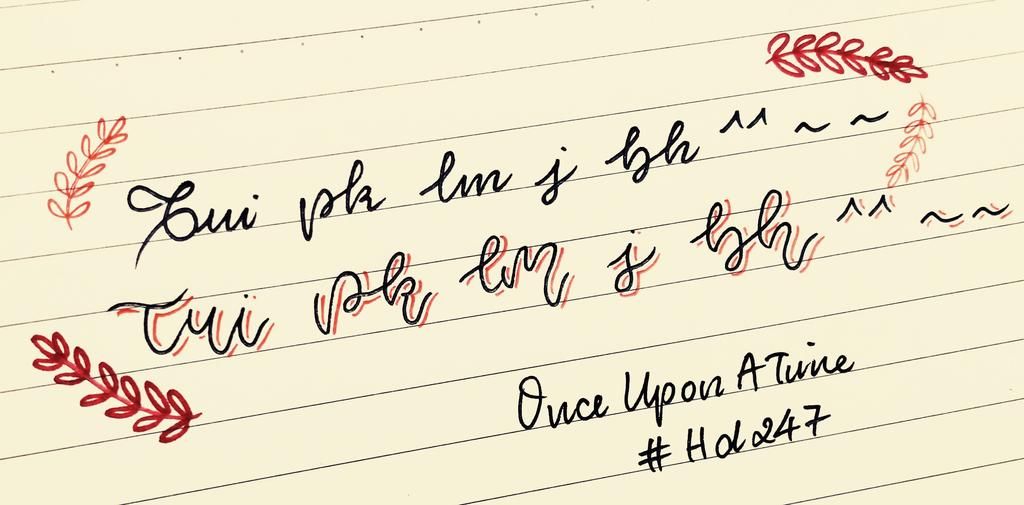 Tui pk lm j bh ^^ ~ ~
Tui pk lm j bh ^^ ~ ~
Once Upon A Time
# Hol247